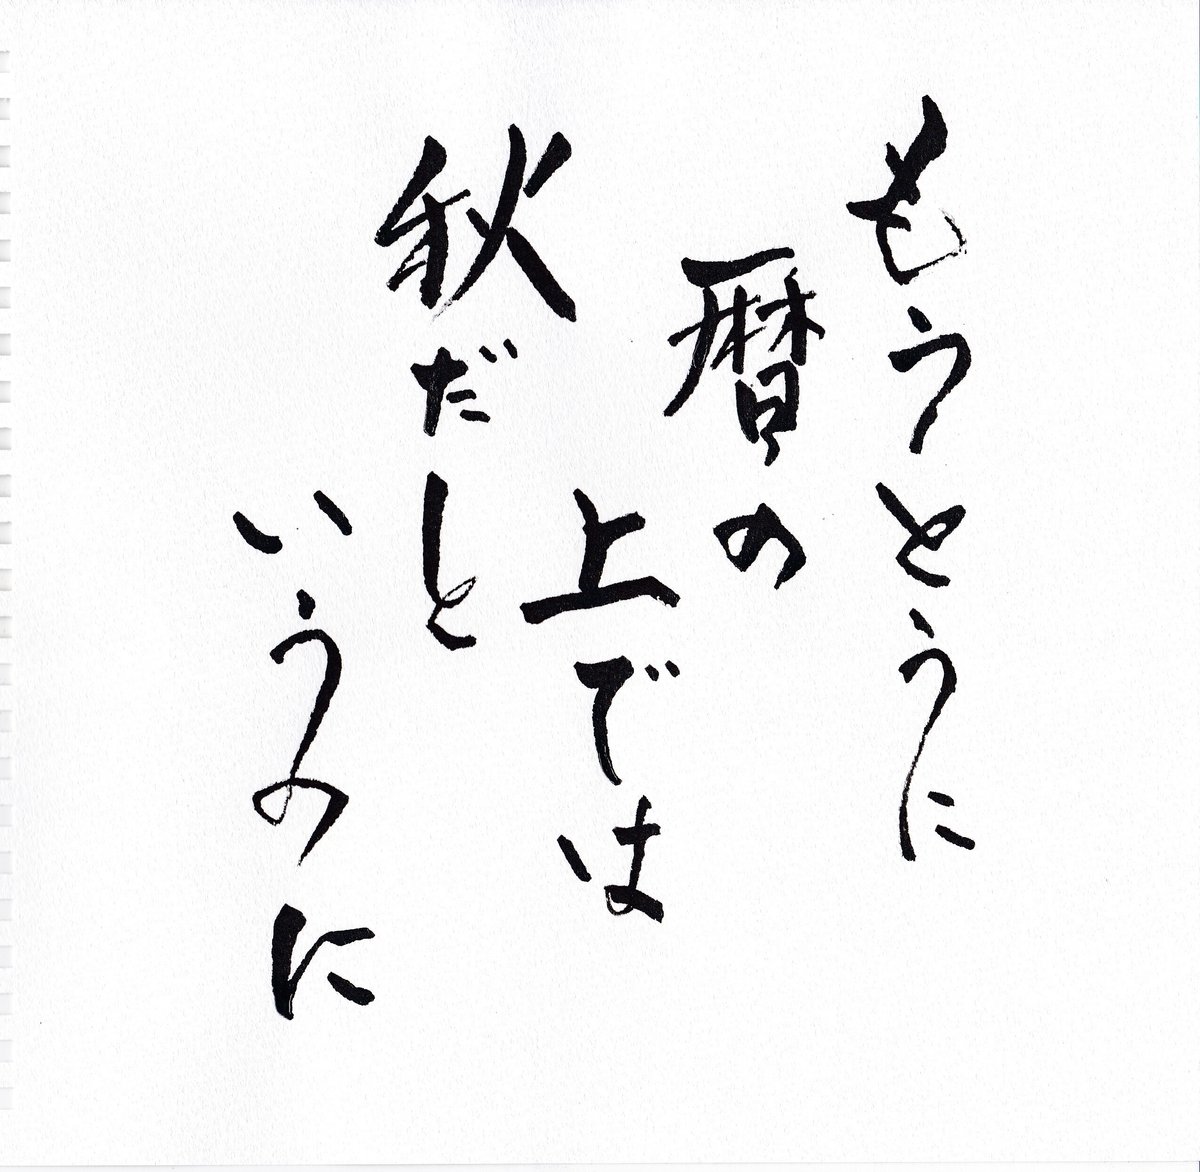 もうとうに
暦の
上では
秋だと
いうのに